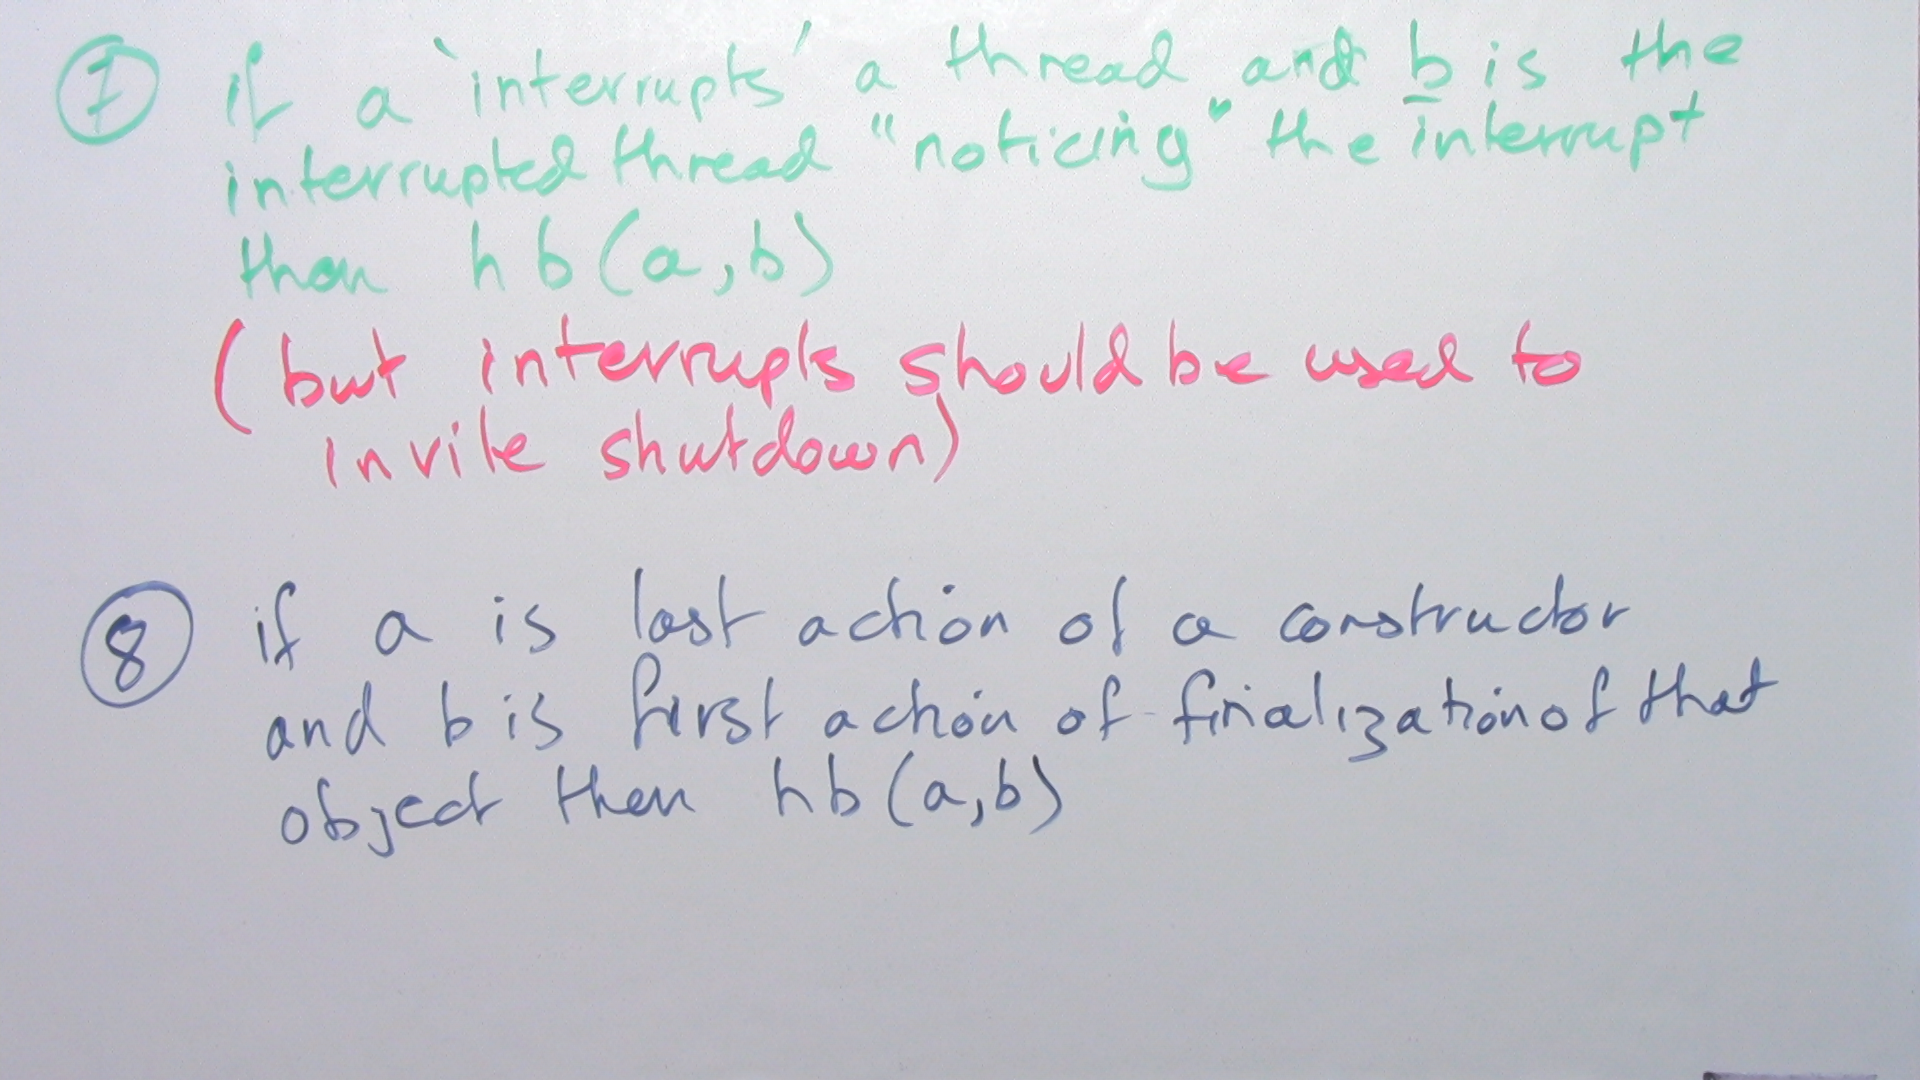 ⑦ if a 'interrupts' a thread and b is the
interrupted thread "noticing" the interrupt
then hb(a,b)
(but interrupts should be used to
invite shutdown)
⑧ if a is last action of a constructor
and b is first action of finalization of that
object then hb(a,b)